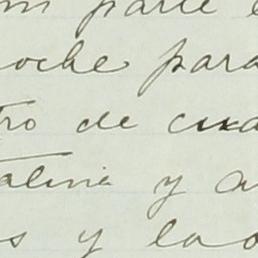 parte
oche para
tro de cua
talina y a
s y lao